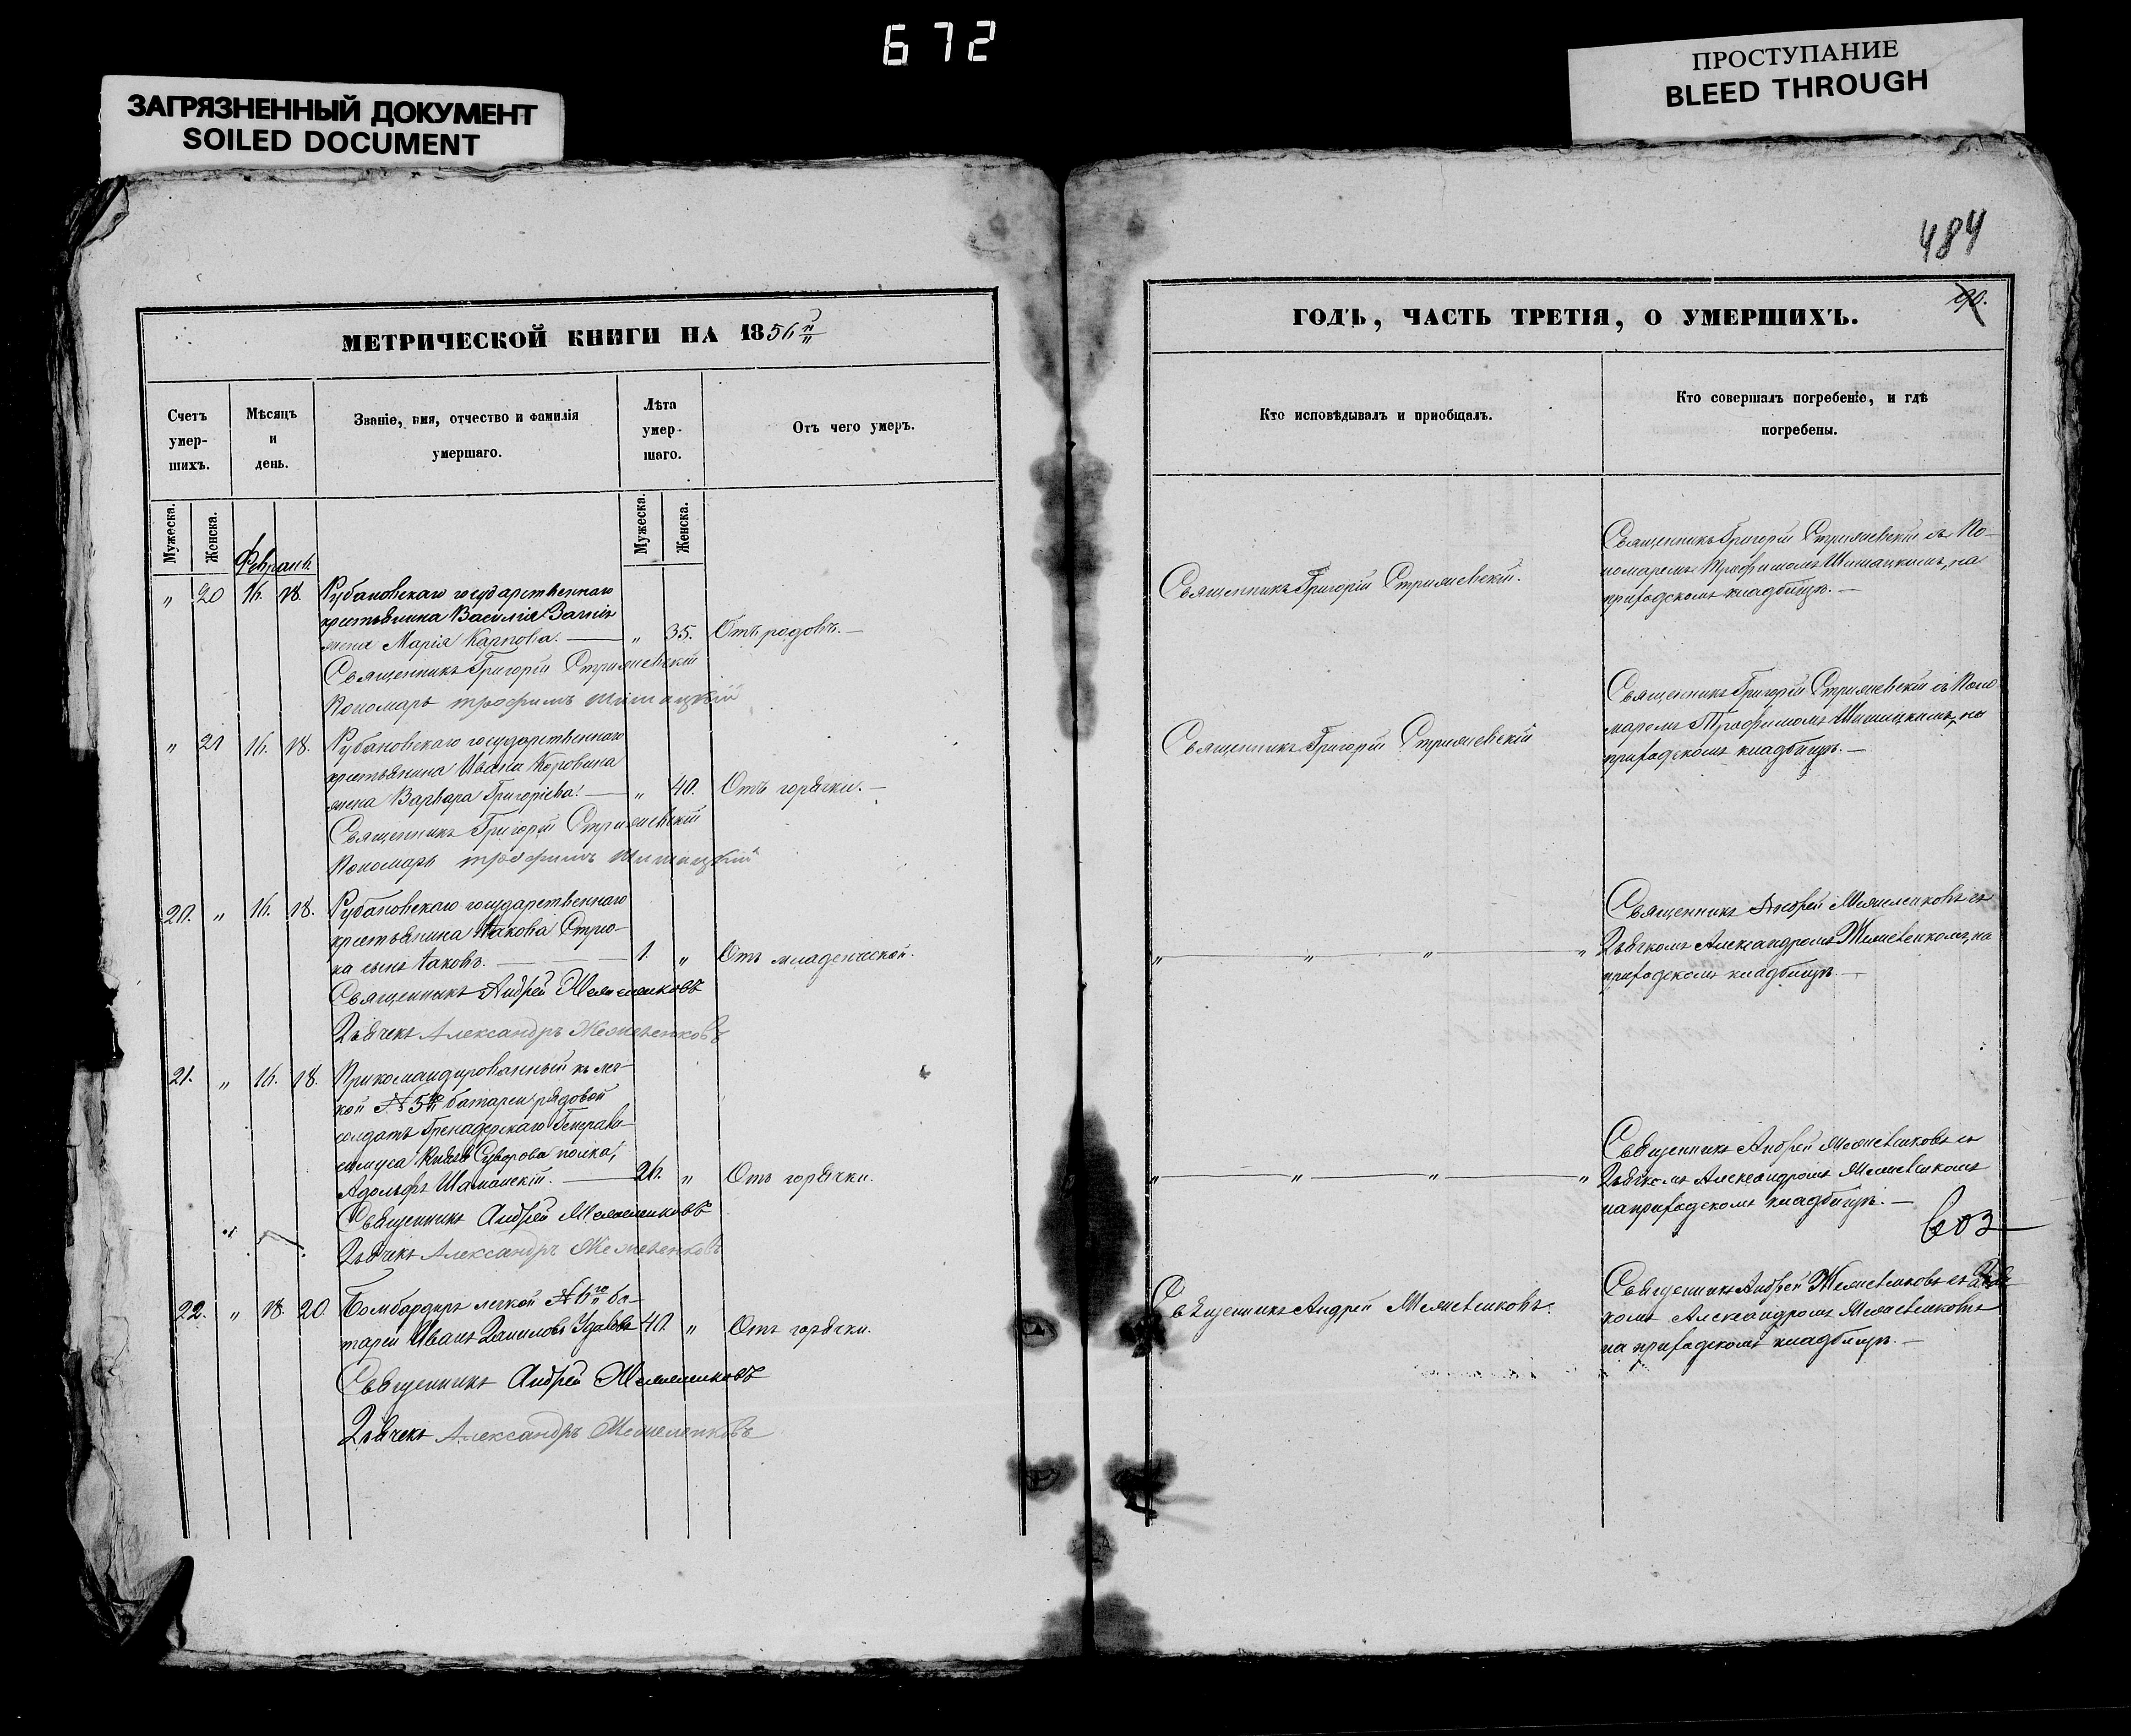 672
ЗАГРЯЗНЕННЫЙ ДОКУМЕНТ
SOILED DOCUMENT
ПРОСТУПАНИЕ
BLEED THROUGH
484
90.
МЕТРИЧЕСКОЙ КНИГИ НА 1856й
Счетъ умер- шихъ.
Мѣсяцъ и день.
Званіе, имя, отчество и фамилія умершаго.
Лѣта умер- шаго.
Отъ чего умеръ.
Мужеска. Женска.
Мужеска. Женска.
Февраль.
" 20 16. 18. Рубановскаго государственнаго
крестьянина Василія
жена Марія Карпова. — " 35. Отъ родовъ. —
Священникъ Григорій Стрижевскій
Пономарь Трофимъ Шишацкій
" 21 16. 18. Рубановскаго государственнаго
крестьянина Ивана Коровина
жена Варвара Григоріева. — " 40. Отъ горячки. —
Священникъ Григорій Стрижевскій
Пономарь Трофимъ Шишацкій
20. " 16. 18. Рубановскаго государственнаго
крестьянина Іакова
ка сынъ Іаковъ. — 1. " Отъ младенческой.
Священникъ Андрей
Дьячекъ Александръ
21. " 16. 18. Прикомандированный къ лег-
кой № 5й батареи рядовой
солдатъ Гренадерскаго Генерали-
симуса Князя Суворова полка,
Адольфъ — 26. " Отъ горячки.
Священникъ Андрей
Дьячекъ Александръ
22. " 18. 20. Бомбардиръ легкой № 6й ба-
тареи Иванъ Даниловъ 40. " Отъ горячки.
Священникъ Андрей
Дьячекъ Александръ
ГОДЪ, ЧАСТЬ ТРЕТІЯ, О УМЕРШИХЪ.
Кто исповѣдывалъ и приобщалъ.
Кто совершалъ погребеніе, и гдѣ погребены.
Священникъ Григорій Стрижевскій.
Священникъ Григорій Стрижевскій съ По-
номаремъ Трофимомъ Шишацкимъ, на
приходскомъ кладбищѣ. —
Священникъ Григорій Стрижевскій
Священникъ Григорій Стрижевскій съ Поно
маремъ Трофимомъ Шишацкимъ, на
приходскомъ кладбищѣ. —
" — " — " — "
Священникъ Андрей съ
Дьячкомъ Александромъ на
приходскомъ кладбищѣ. —
" — " — " — "
Священникъ Андрей съ
Дьячкомъ Александромъ
на приходскомъ кладбищѣ. —
Священникъ Андрей
Священникъ Андрей съ Дьяч-
комъ Александромъ
на приходскомъ кладбищѣ. —